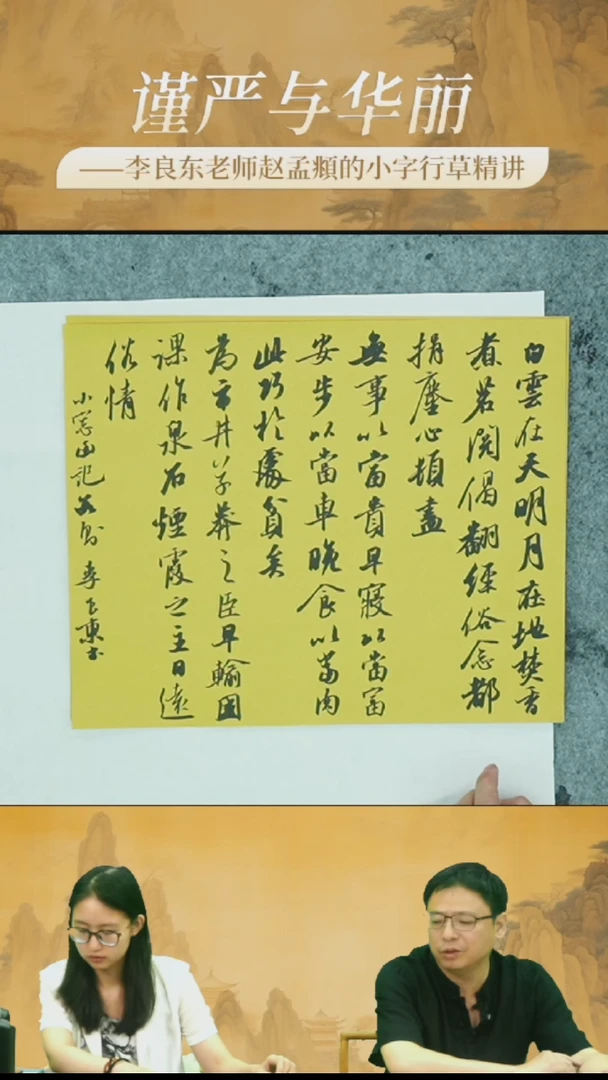 谨严与华丽
——李良东老师赵孟頫的小字行草精讲
白雲在天明月在地焚香
煮茗閱偈翻經俗念都
捐塵心頓盡
無事以當貴早寢以當富
安步以當車晚食以當肉
此巧於處貧矣
為市井草莽之臣早輸國
課作泉石煙霞之主日遠
俗情
小窓幽記 李良東書